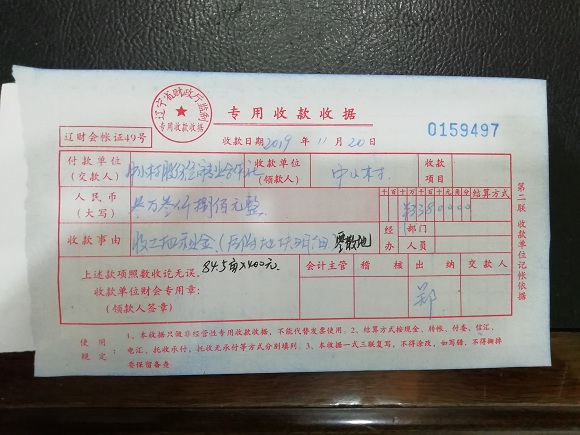 辽宁省财政厅监制
专用收款收据
专用收款收据
收款日期 2019 年 11 月 20 日
0159497
辽财会帐证49号
付款单位
(交款人)
收款单位
(领款人)
中小村
收款
项目
人民币
(大写)
叁万叁仟捌佰元整
千百十万千百十元角分
结算方式
¥3380000
收款事由
收土地租金(后附地块明细)
经办
部门
人员
84.5亩×400元
上述款项照数收讫无误。
收款单位财会专用章:
(领款人签章)
会计主管
稽 核
出 纳
交款人
郑
第二联 收款单位记帐依据
使用规定:
1、本收据只做非经营性专用收款收据,不能代替发票使用。2、结算方式按现金、转帐、付委、信汇、
电汇、托收承付、托收无承付等方式分别填列。3、本收据一式三联复写,不得涂改,如写错,不得撕掉
要保留备查